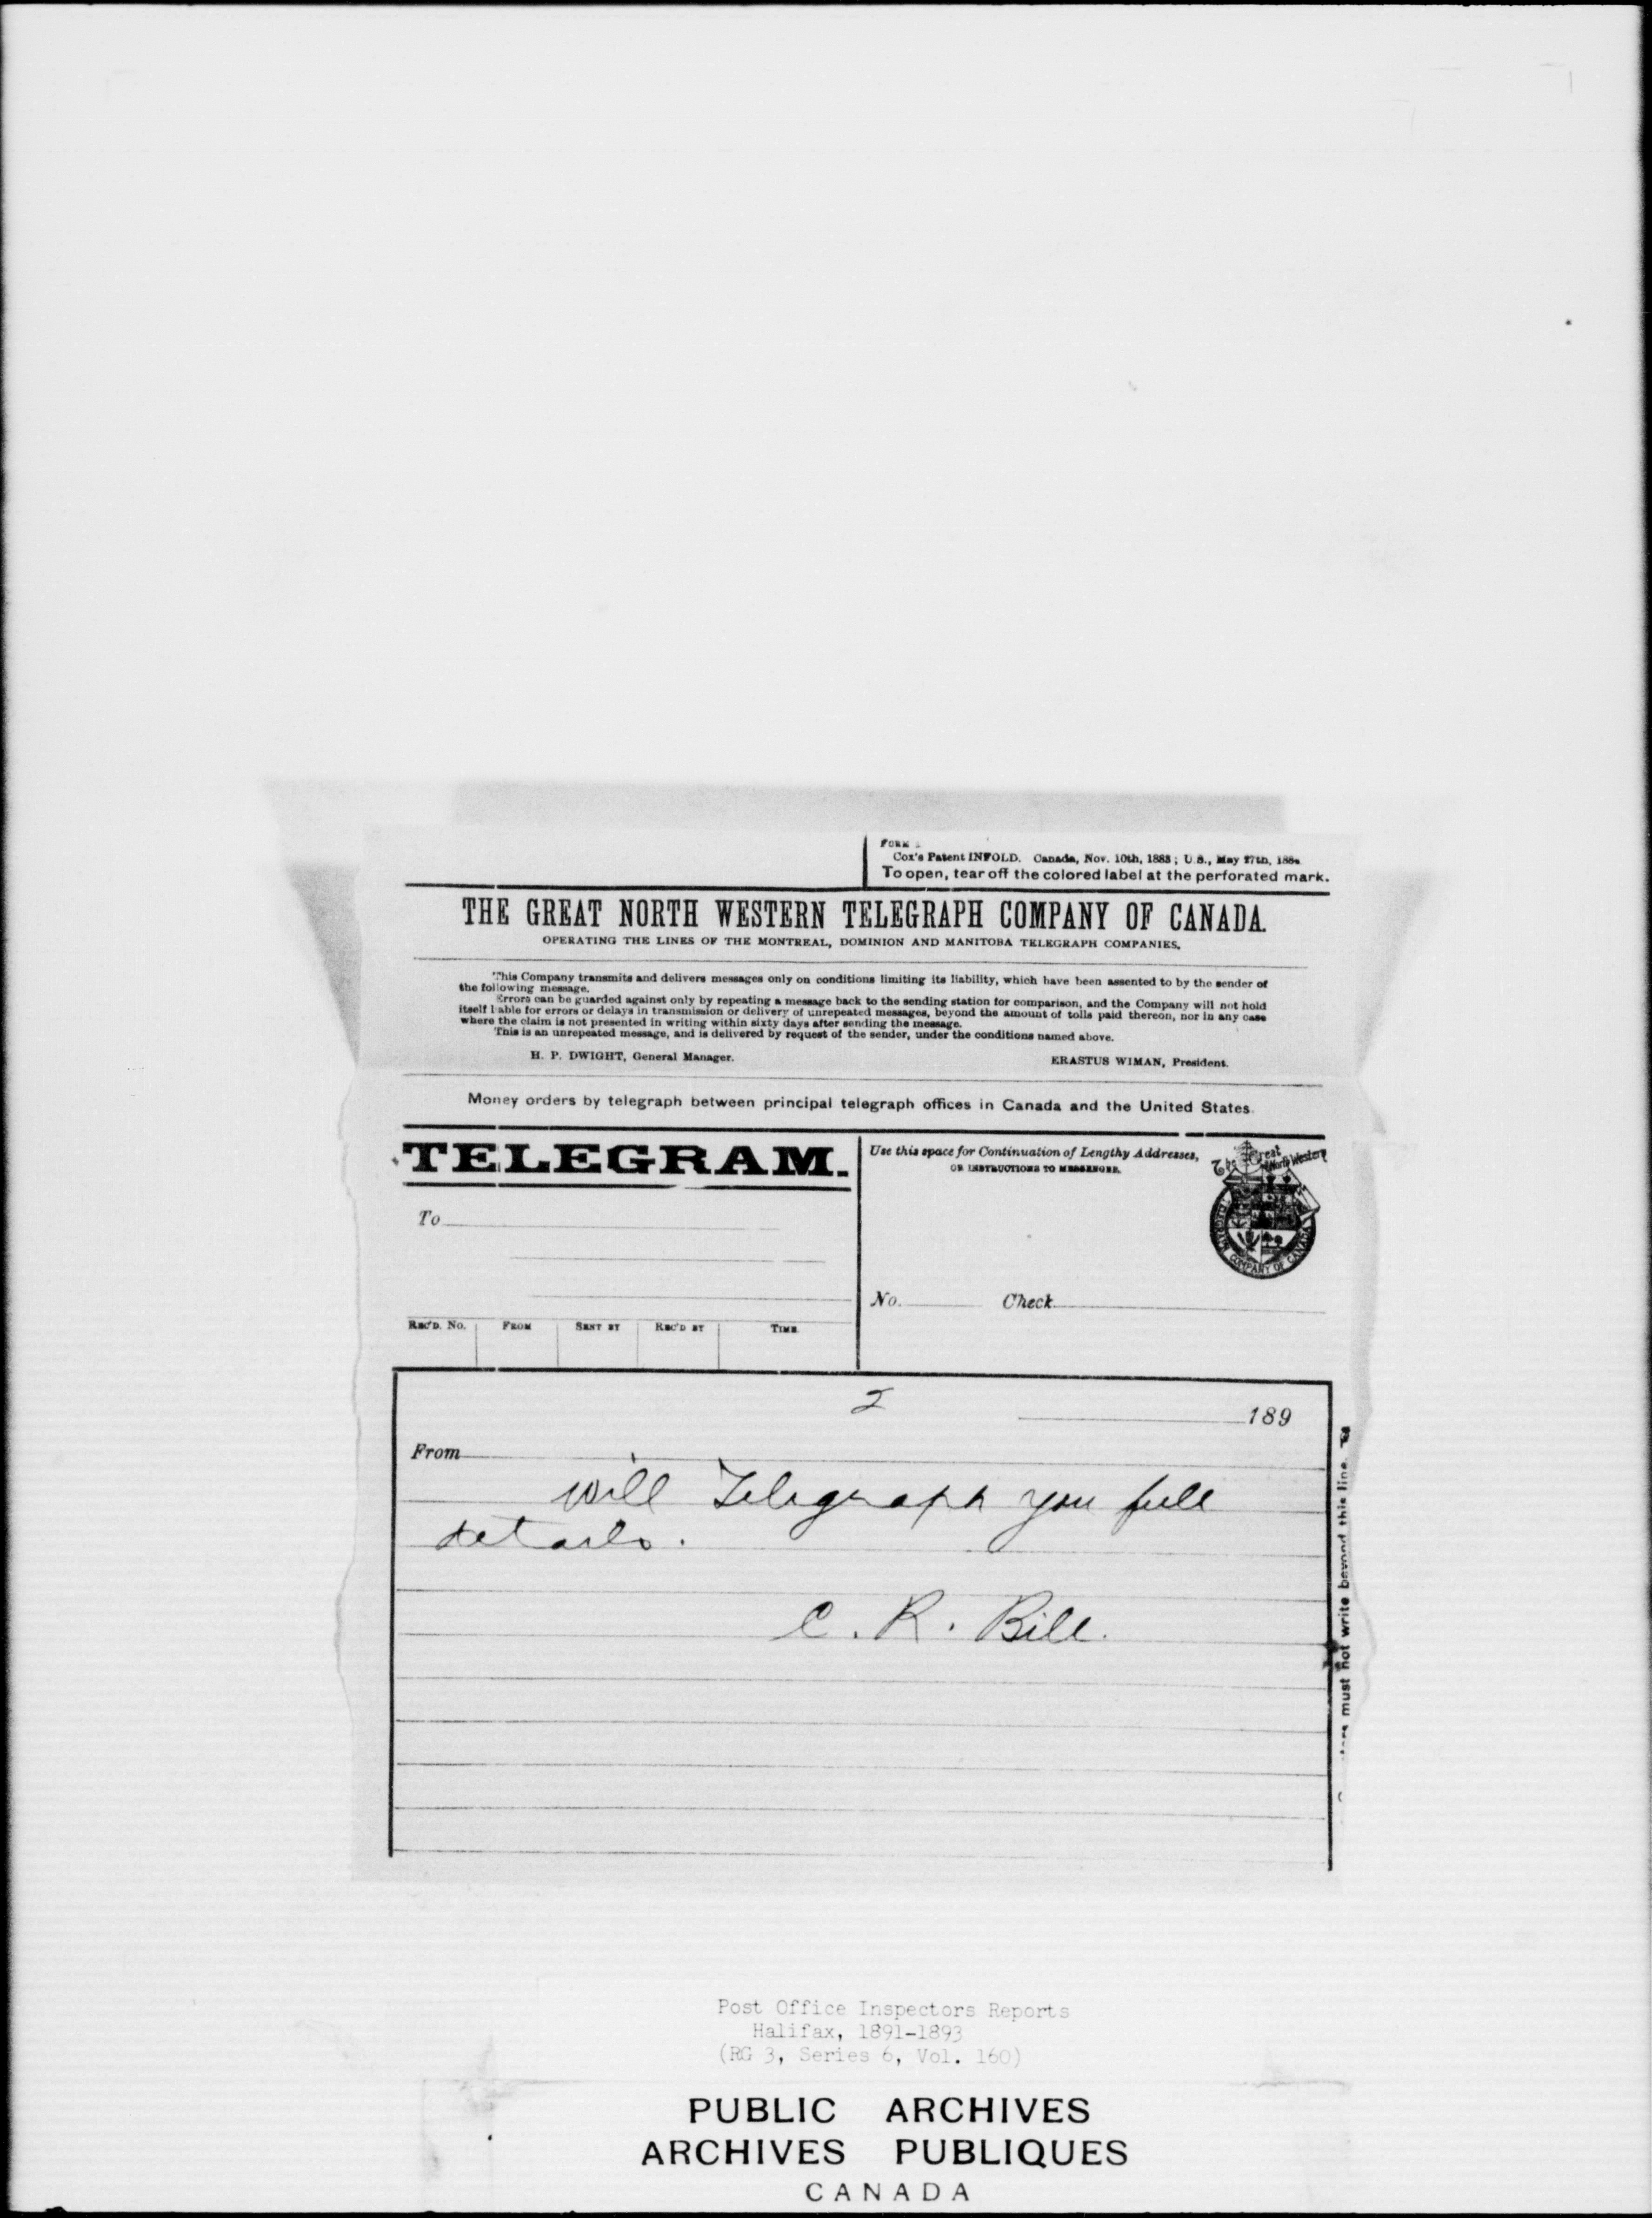 FORM
Cox's Patent INFOLD. Canada, Nov. 10th, 1883; U.S., May 27th, 1884
To open, tear off the colored label at the perforated mark.
THE GREAT NORTH WESTERN TELEGRAPH COMPANY OF CANADA.
OPERATING THE LINES OF THE MONTREAL, DOMINION AND MANITOBA TELEGRAPH COMPANIES.
This Company transmits and delivers messages only on conditions limiting its liability, which have been assented to by the sender of
the following message.
Errors can be guarded against only by repeating a message back to the sending station for comparison, and the Company will not hold
itself liable for errors or delays in transmission or delivery of unrepeated messages, beyond the amount of tolls paid thereon, nor in any case
where the claim is not presented in writing within sixty days after sending the message.
This is an unrepeated message, and is delivered by request of the sender, under the conditions named above.
H. P. DWIGHT, General Manager.
ERASTUS WIMAN, President.
Money orders by telegraph between principal telegraph offices in Canada and the United States.
TELEGRAM.
Use this space for Continuation of Lengthy Addresses,
OR INSTRUCTIONS TO MESSENGER.
The Great
North Western
TELEGRAPH COMPANY OF CANADA
To
No. Check
REC'D. No. FROM SENT BY REC'D BY TIME
2
189
From
will Telegraph you full
details.
C. R. Bill.
must not write beyond this line.
Post Office Inspectors Reports
Halifax, 1891-1893
(RG 3, Series 6, Vol. 160)
PUBLIC ARCHIVES
ARCHIVES PUBLIQUES
CANADA